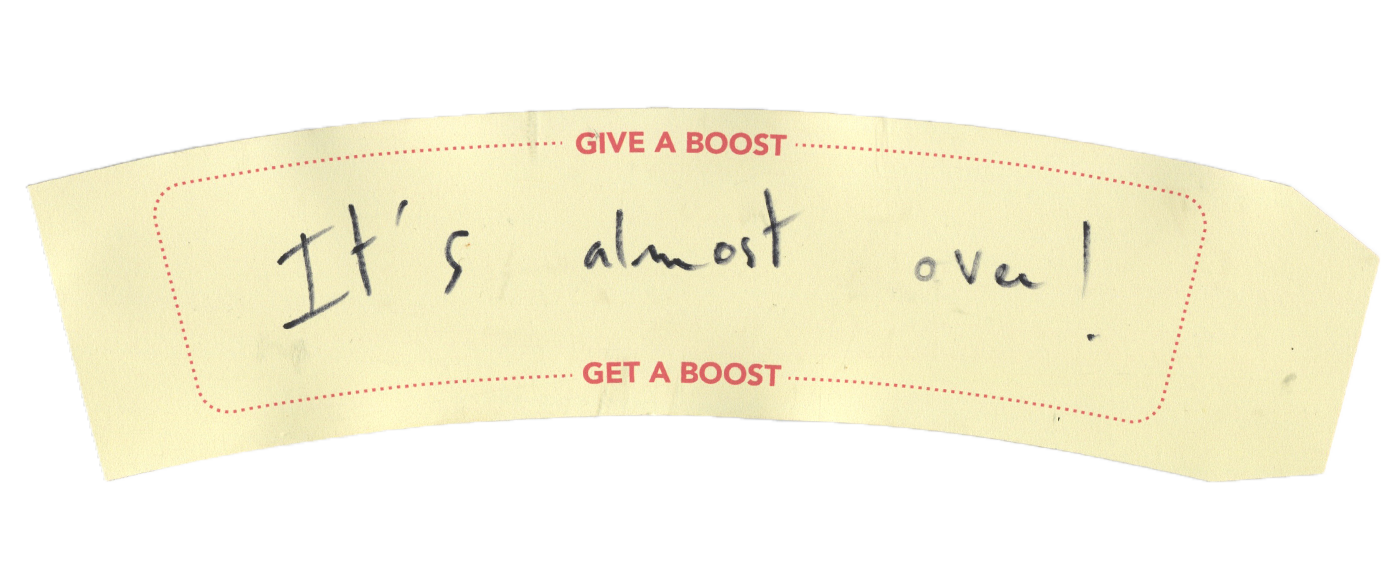 GIVE A BOOST
It's almost over!
GET A BOOST